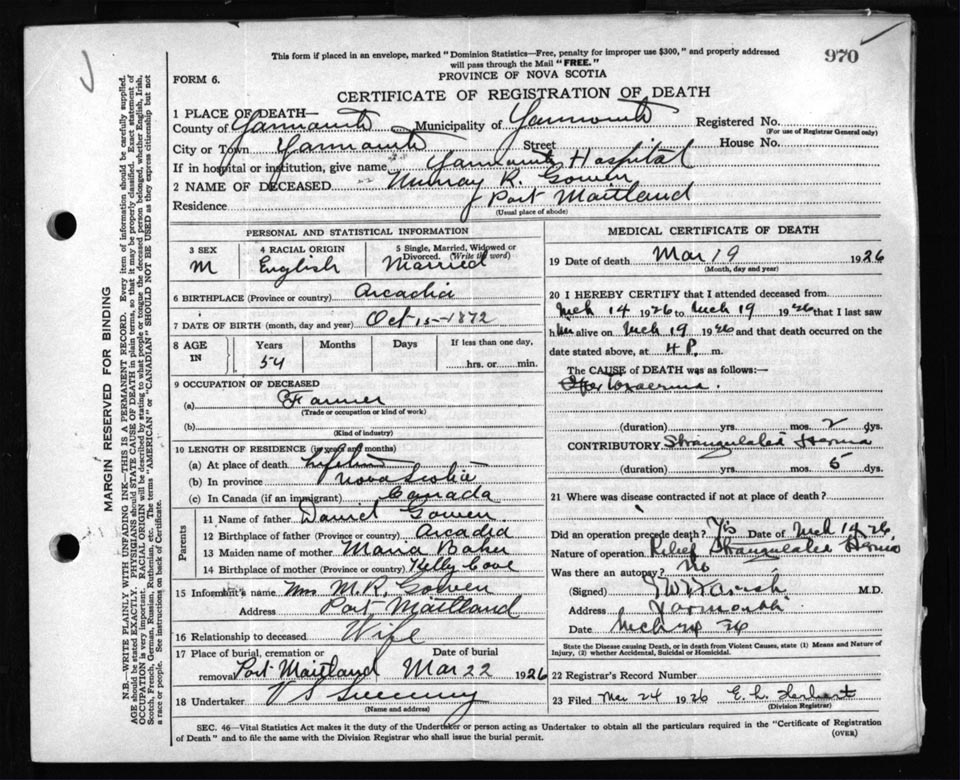 This form if placed in an envelope, marked "Dominion Statistics—Free, penalty for improper use $300," and properly addressed
will pass through the Mail "FREE."
970
FORM 6.
PROVINCE OF NOVA SCOTIA
CERTIFICATE OF REGISTRATION OF DEATH
1 PLACE OF DEATH—
County of Yarmouth Municipality of Yarmouth Registered No.
(For use of Registrar General only)
City or Town Yarmouth Street House No.
If in hospital or institution, give name Yarmouth Hospital
2 NAME OF DECEASED Murray R. Gowen
Residence Port Maitland
(Usual place of abode)
PERSONAL AND STATISTICAL INFORMATION
3 SEX 4 RACIAL ORIGIN 5 Single, Married, Widowed or
Divorced. (Write the word)
M English Married
6 BIRTHPLACE (Province or country) Arcadia
7 DATE OF BIRTH (month, day and year) Oct 15-1872
8 AGE IN Years Months Days If less than one day,
54 hrs. or min.
9 OCCUPATION OF DECEASED
(a) Farmer
(Trade or occupation or kind of work)
(b)
(Kind of industry)
10 LENGTH OF RESIDENCE (in years and months)
(a) At place of death
(b) In province Nova Scotia
(c) In Canada (if an immigrant) Canada
Parents
11 Name of father Daniel Gowen
12 Birthplace of father (Province or country) Arcadia
13 Maiden name of mother Maria Baker
14 Birthplace of mother (Province or country) Kelly Cove
15 Informant's name Mrs M. R. Gowen
Address Port Maitland
16 Relationship to deceased Wife
17 Place of burial, cremation or Date of burial
removal Port Maitland Mar 22 1926
18 Undertaker V S Sweeney
(Name and address)
MEDICAL CERTIFICATE OF DEATH
19 Date of death Mar 19 1926
(Month, day and year)
20 I HEREBY CERTIFY that I attended deceased from
Mch 14 1926 to Mch 19 1926 that I last saw
him alive on Mch 19 1926 and that death occurred on the
date stated above, at 4 P. m.
The CAUSE of DEATH was as follows:—
(duration) yrs. mos. 2 dys.
CONTRIBUTORY Strangulated Hernia
(duration) yrs. mos. 5 dys.
21 Where was disease contracted if not at place of death?
Did an operation precede death? Yes Date of Mch 14 26
Nature of operation Relief Strangulated Hernia
Was there an autopsy? No
(Signed) M.D.
Address Yarmouth
Date Mch 26
State the Disease causing Death, or in death from Violent Causes, state (1) Means and Nature of
Injury, (2) whether Accidental, Suicidal or Homicidal.
22 Registrar's Record Number
23 Filed Mar 24 1926
(Division Registrar)
SEC. 46—Vital Statistics Act makes it the duty of the Undertaker or person acting as Undertaker to obtain all the particulars required in the "Certificate of Registration
of Death" and to file the same with the Division Registrar who shall issue the burial permit.
(OVER)
MARGIN RESERVED FOR BINDING
N.B.—WRITE PLAINLY WITH UNFADING INK—THIS IS A PERMANENT RECORD. Every item of information should be carefully supplied.
AGE should be stated EXACTLY. PHYSICIANS should STATE CAUSE OF DEATH in plain terms, so that it may be properly classified. Exact statement of
OCCUPATION is very important. RACIAL ORIGIN will be described by stating to what people or tongue the deceased person belonged, whether English, Irish,
Scotch, French, German, Russian, Ruthenian, etc. The terms "AMERICAN" or "CANADIAN" SHOULD NOT BE USED as they express citizenship but not
a race or people. See instructions on back of Certificate.